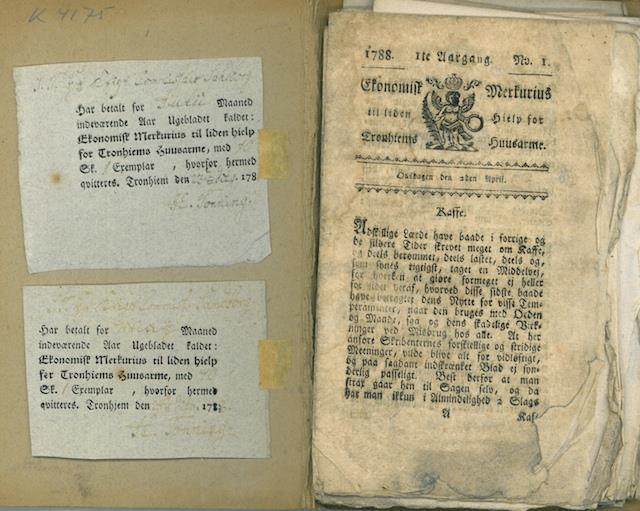 K 4175
Har betalt for Junii Maaned
indeværende Aar Ugebladet kaldet:
Ekonomisk Merkurius til liden hielp
for Tronhiems Huusarme, med
Sk. 1 Exemplar , hvorfor hermed
qvitteres. Tronhiem den 178
Har betalt for Maaned
indeværende Aar Ugebladet kaldet:
Ekonomisk Merkurius til liden hielp
for Tronhiems Huusarme, med
Sk. 1 Exemplar , hvorfor hermed
qvitteres. Tronhjem den 178
1788. 1te Aargang. No. 1.
Ekonomisk Merkurius
til liden Hielp for
Tronhiems Huusarme.
Onsdagen den 2den April.
Kaffe.
Adskillige Lærde have baade i forrige og
de silvere Tider skrevet meget om Kaffe,
og deels berømmet, deels lastet, deels og,
som synes rigtigst, taget en Middelvej,
for hverken at giøre formeget ej heller
for lidet deraf, hvorved disse sidste baade
have bevægtet dens Nytte for visse Tem-
peramenter, naar den bruges med Orden
og Maade, saa og dens skadelig Virk-
ninger ved Misbrug hos alle. At her
anføre Skribenternes forskiellige og stridige
Meeninger, vilde blive alt for vidløftigt,
og paa saadant indskrænket Blad ej syn-
derlig passeligt. Best derfor at man
strax gaar hen til Sagen selv, og da
har man ikkun i Almindelighed 2 Slags
A Kaf-